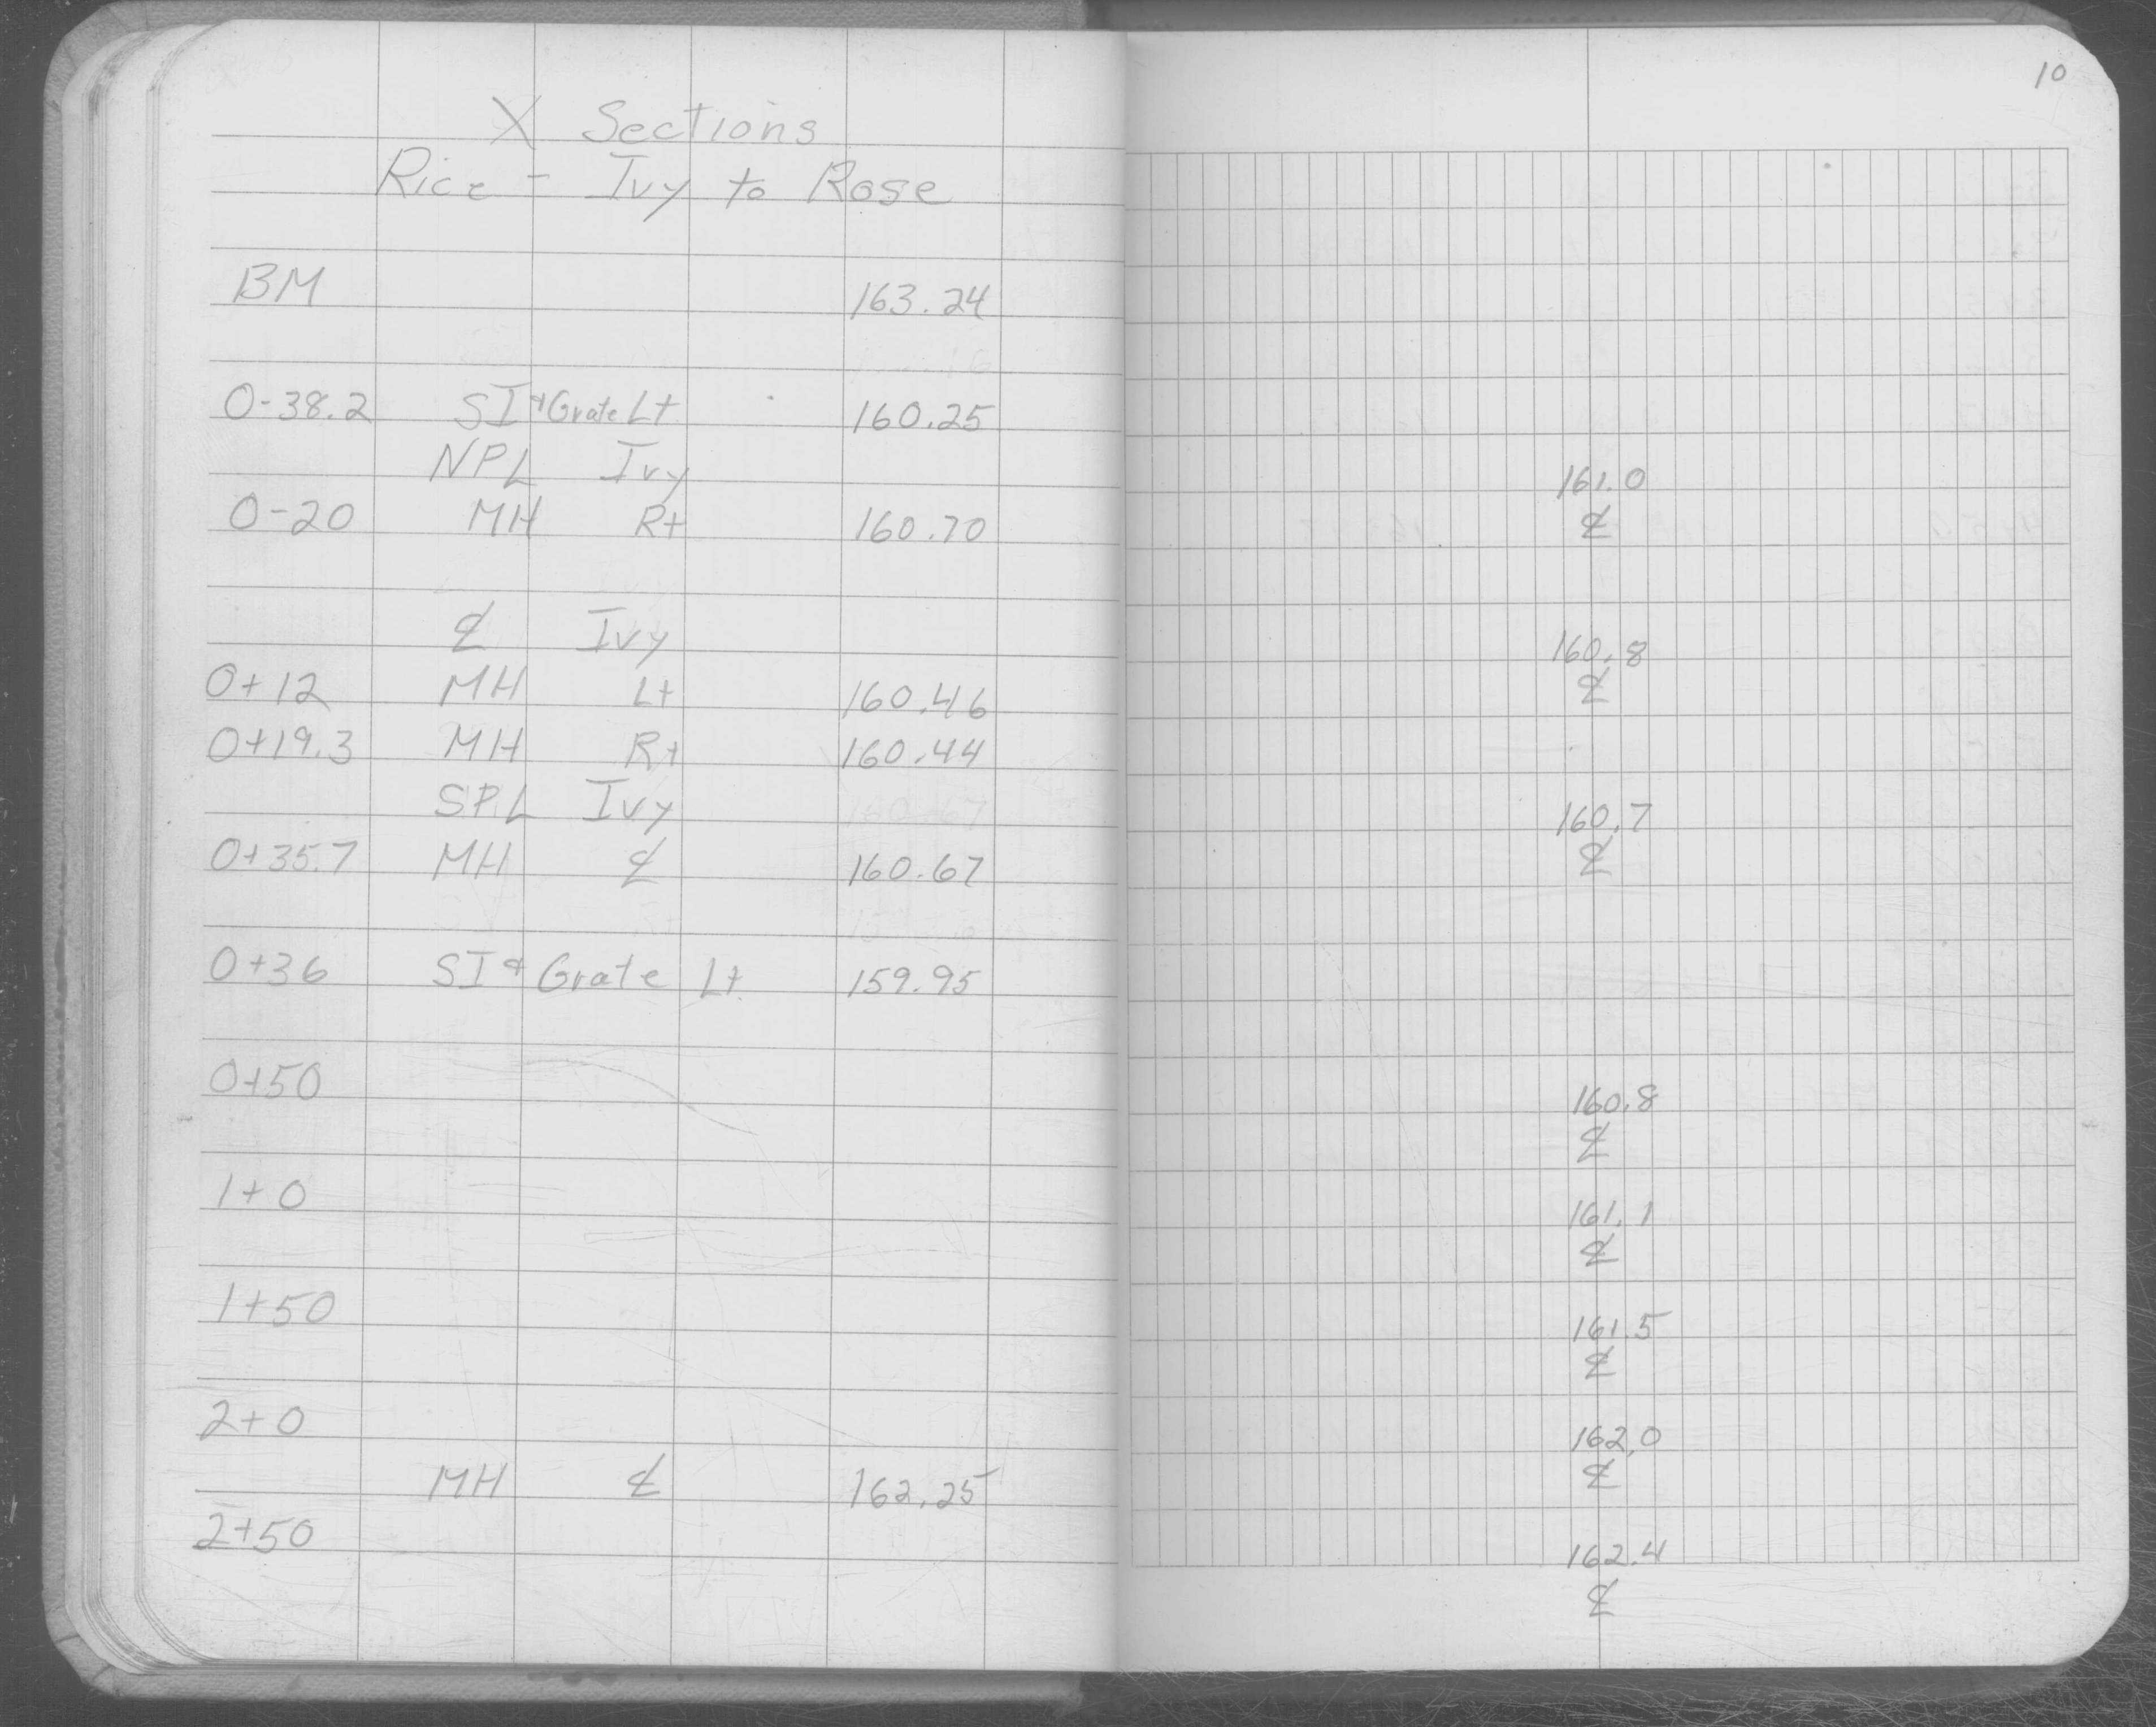 10
X Sections
Rice - Ivy to Rose
BM 163.24
0-38.2 SI & Grate Lt 160.25
NPL Ivy 161.0
0-20 MH Rt 160.70 ℄
℄ Ivy 160.8
0+12 MH Lt 160.46 ℄
0+19.3 MH Rt 160.44
SPL Ivy 160.7
0+35.7 MH ℄ 160.67 ℄
0+36 SI & Grate Lt 159.95
0+50 160.8
℄
1+0 161.1
℄
1+50 161.5
℄
2+0 162.0
MH ℄ 162.25 ℄
2+50 162.4
℄